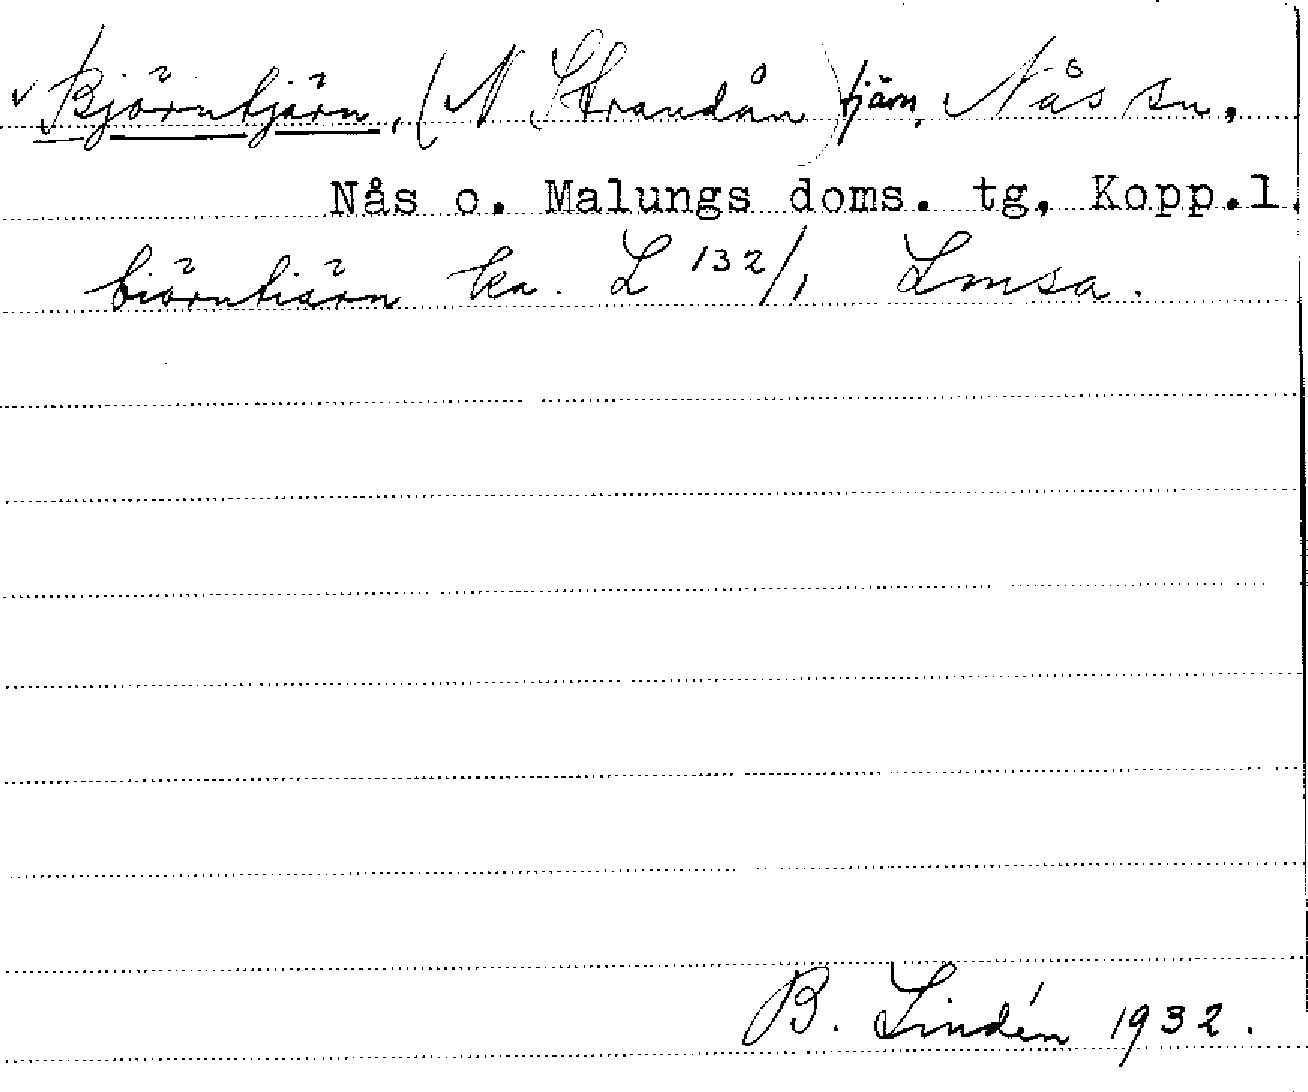 v Björntjärn, (N Strandån) tjärn, Nås sn,
Nås o. Malungs doms. tg, Kopp.l.
biörntiärn ka. L 132/1 Lmsa.
B. Lindén 1932.